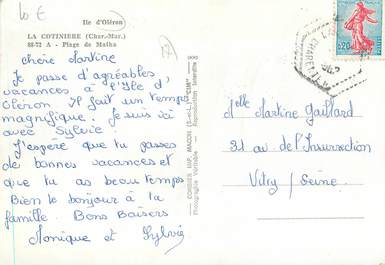 10 €
Ile d'Oléron
LA COTINIERE (Char.-Mar.)
88-72 A - Plage de Matha
17
chère Martine
Je passe d'agréables
vacances à l'Ile d'
Oléron. Il fait un temps
magnifique. Je suis ici
avec Sylvie.
J'espère que tu passes
de bonnes vacances et
que tu as beau temps
Bien le bonjour à ta
famille. Bons Baisers
Monique et Sylvie
COMBIER IMP. MACON (S.-&-L.) "CIM"
Photographie Véritable - Reproduction interdite
0,20
Melle Martine Gaillard
31 av de l'Insurrection
Vitry / Seine